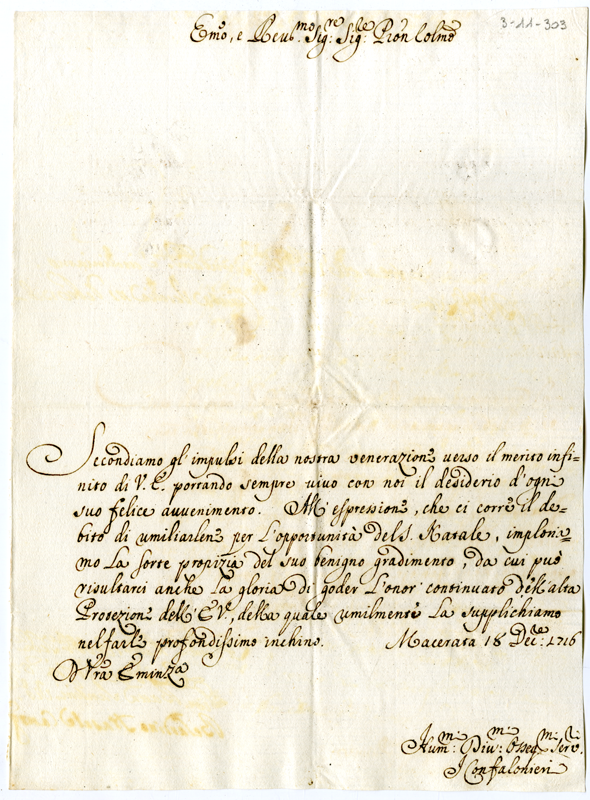 3-11-303
Emo, e Reu.mo Sig.re Sig.re Pron Colmo
Secondiamo gl'impulsi della nostra venerazione verso il merito infi=
nito di V.E. portando sempre vivo con noi il desiderio d'ogni
suo felice avvenimento. All'espressione, che ci corre il de=
bito di umiliarlene per l'opportunità del S. Natale, implori=
mo la sorte propizia del suo benigno gradimento, da cui può
risultarci anche la gloria di goder l'onor continuato dell'alta
Protezione dell'E.V., della quale umilmente la supplichiamo
nel farle profondissimo inchino. Macerata 18 Dec.e 1716
D Vra Eminza
Hum.mi Diu.mi Osseq.mi Serv.i
I Confalonieri